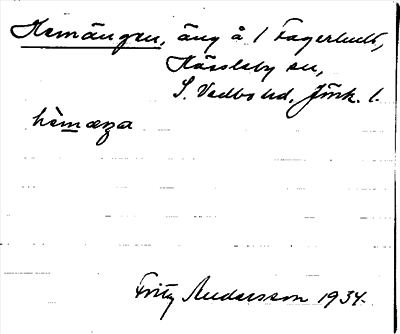 Hemängen, äng å 1 Fagerhult,
Hässleby sn,
S. Vedbo hd, Jönk. l.
hèmæŋa
Fritz Andersson 1934.